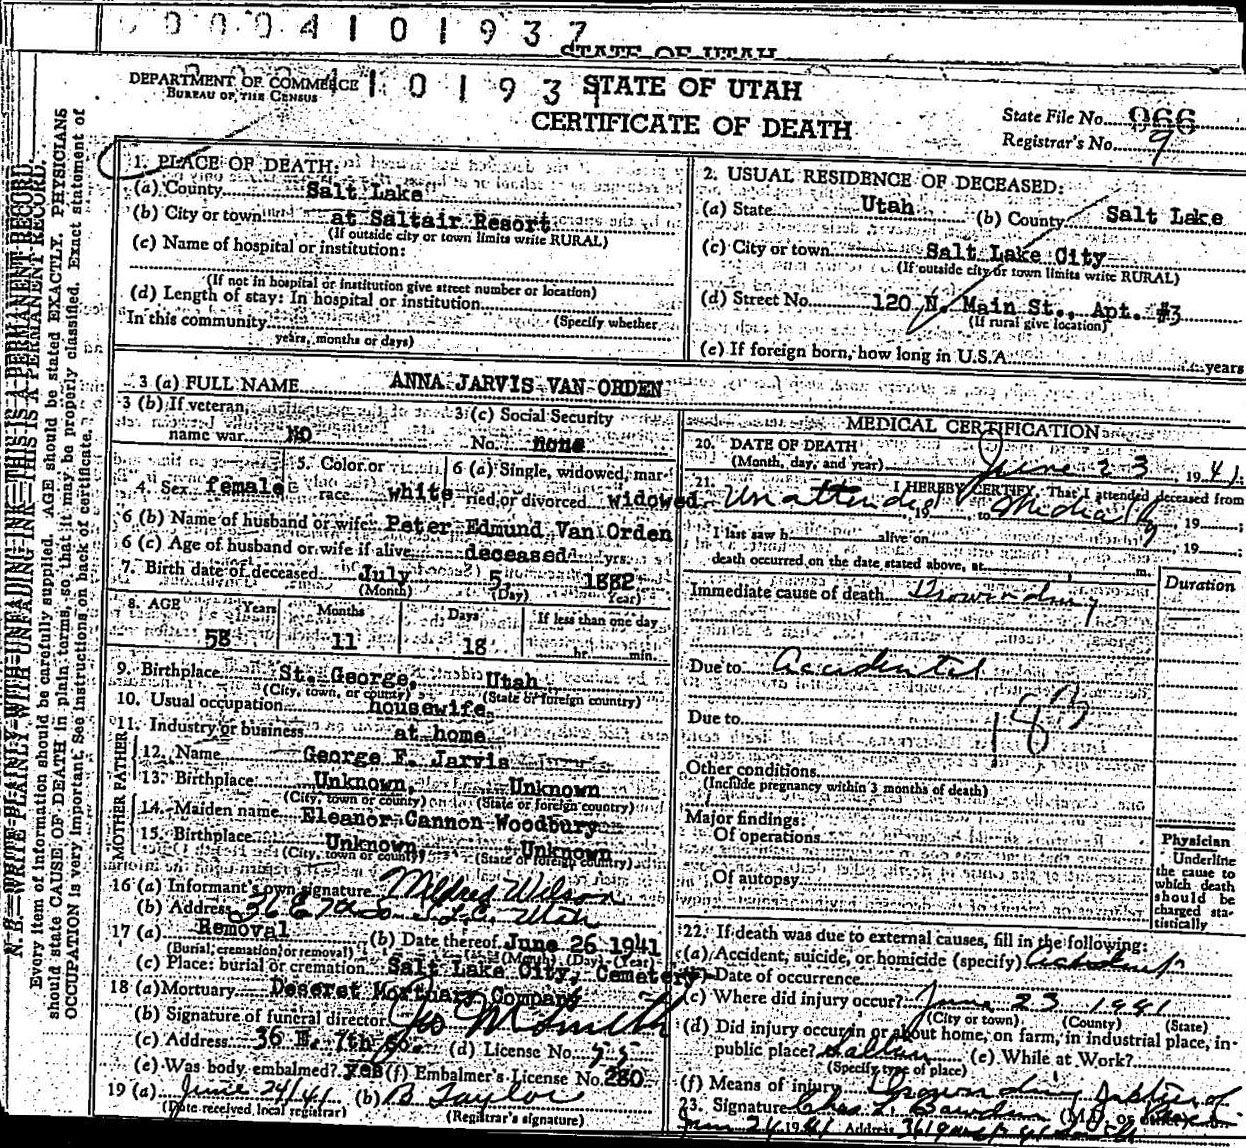 0004101937
STATE OF UTAH
DEPARTMENT OF COMMERCE
BUREAU OF THE CENSUS
STATE OF UTAH
CERTIFICATE OF DEATH
State File No. 966
Registrar's No. 9
N. B.—WRITE PLAINLY WITH UNFADING INK—THIS IS A PERMANENT RECORD.
Every item of information should be carefully supplied. AGE should be stated EXACTLY. PHYSICIANS
should state CAUSE OF DEATH in plain terms, so that it may be properly classified. Exact statement of
OCCUPATION is very important. See instructions on back of certificate.
1. PLACE OF DEATH:
(a) County Salt Lake
(b) City or town at Saltair Resort
(If outside city or town limits write RURAL)
(c) Name of hospital or institution:
(If not in hospital or institution give street number or location)
(d) Length of stay: In hospital or institution
In this community (Specify whether
years, months or days)
2. USUAL RESIDENCE OF DECEASED:
(a) State Utah (b) County Salt Lake
(c) City or town Salt Lake City
(If outside city or town limits write RURAL)
(d) Street No. 120 N. Main St., Apt. #3
(If rural give location)
(e) If foreign born, how long in U.S.A. years
3 (a) FULL NAME ANNA JARVIS VAN ORDEN
3 (b) If veteran, name war NO
3 (c) Social Security No. none
4. Sex female
5. Color or race white
6 (a) Single, widowed, married or divorced widowed
6 (b) Name of husband or wife Peter Edmund Van Orden
6 (c) Age of husband or wife if alive deceased yrs.
7. Birth date of deceased July 5, 1882
(Month) (Day) (Year)
8. AGE Years Months Days If less than one day
58 11 18 hr. min.
9. Birthplace St. George, Utah
(City, town, or county) (State or foreign country)
10. Usual occupation housewife
11. Industry or business at home
FATHER
12. Name George F. Jarvis
13. Birthplace Unknown, Unknown
(City, town or county) (State or foreign country)
MOTHER
14. Maiden name Eleanor Cannon Woodbury
15. Birthplace Unknown, Unknown
(City, town or county) (State or foreign country)
16 (a) Informant's own signature Mildred Wilson
(b) Address 36 E 7th So. S.L.C. Utah
17 (a) Removal (b) Date thereof June 26 1941
(Burial, cremation or removal) (Month) (Day) (Year)
(c) Place: burial or cremation Salt Lake City, Cemetery
18 (a) Mortuary Deseret Mortuary Company
(b) Signature of funeral director
(c) Address 36 E. 7th So. (d) License No. 55
(e) Was body embalmed? yes (f) Embalmer's License No. 280
19 (a) June 24/41 (b) B Taylor
(Date received local registrar) (Registrar's signature)
MEDICAL CERTIFICATION
20. DATE OF DEATH
(Month, day, and year) June 23, 1941
21. I HEREBY CERTIFY, That I attended deceased from
Unattended 19 to Medially, 19
I last saw h alive on , 19
death occurred on the date stated above, at m.
Duration
Immediate cause of death Drowning
Due to Accidental
Due to
183
Other conditions
(Include pregnancy within 3 months of death)
Major findings:
Of operations
Of autopsy
Physician
Underline
the cause to
which death
should be
charged sta-
tistically
22. If death was due to external causes, fill in the following:
(a) Accident, suicide, or homicide (specify) Accident
(b) Date of occurrence
(c) Where did injury occur? June 23 1941
(City or town) (County) (State)
(d) Did injury occur in or about home, on farm, in industrial place, in
public place? Saltair (e) While at Work?
(Specify type of place)
(f) Means of injury Drowning
23. Signature Chas.
Address